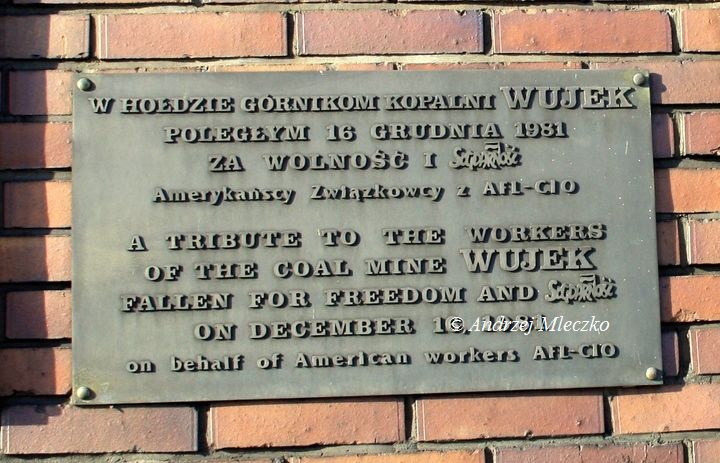 W HOŁDZIE GÓRNIKOM KOPALNI WUJEK
POLEGŁYM 16 GRUDNIA 1981
ZA WOLNOŚĆ I Solidarność
Amerykańscy Związkowcy z AFL-CIO
A TRIBUTE TO THE WORKERS
OF THE COAL MINE WUJEK
FALLEN FOR FREEDOM AND Solidarność
ON DECEMBER 16, 1981
© Andrzej Mleczko
on behalf of American workers AFL-CIO